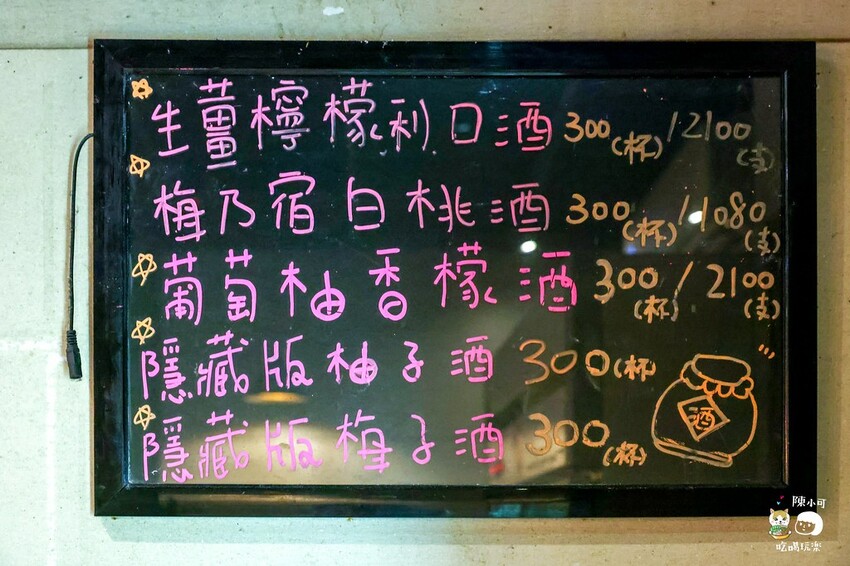 生薑檸檬利口酒 300(杯)/2100(支)
梅乃宿白桃酒 300(杯)/1080(支)
葡萄柚香檬酒 300(杯)/2100(支)
隱藏版柚子酒 300(杯)
隱藏版梅子酒 300(杯)
酒
陳小可
吃喝玩樂